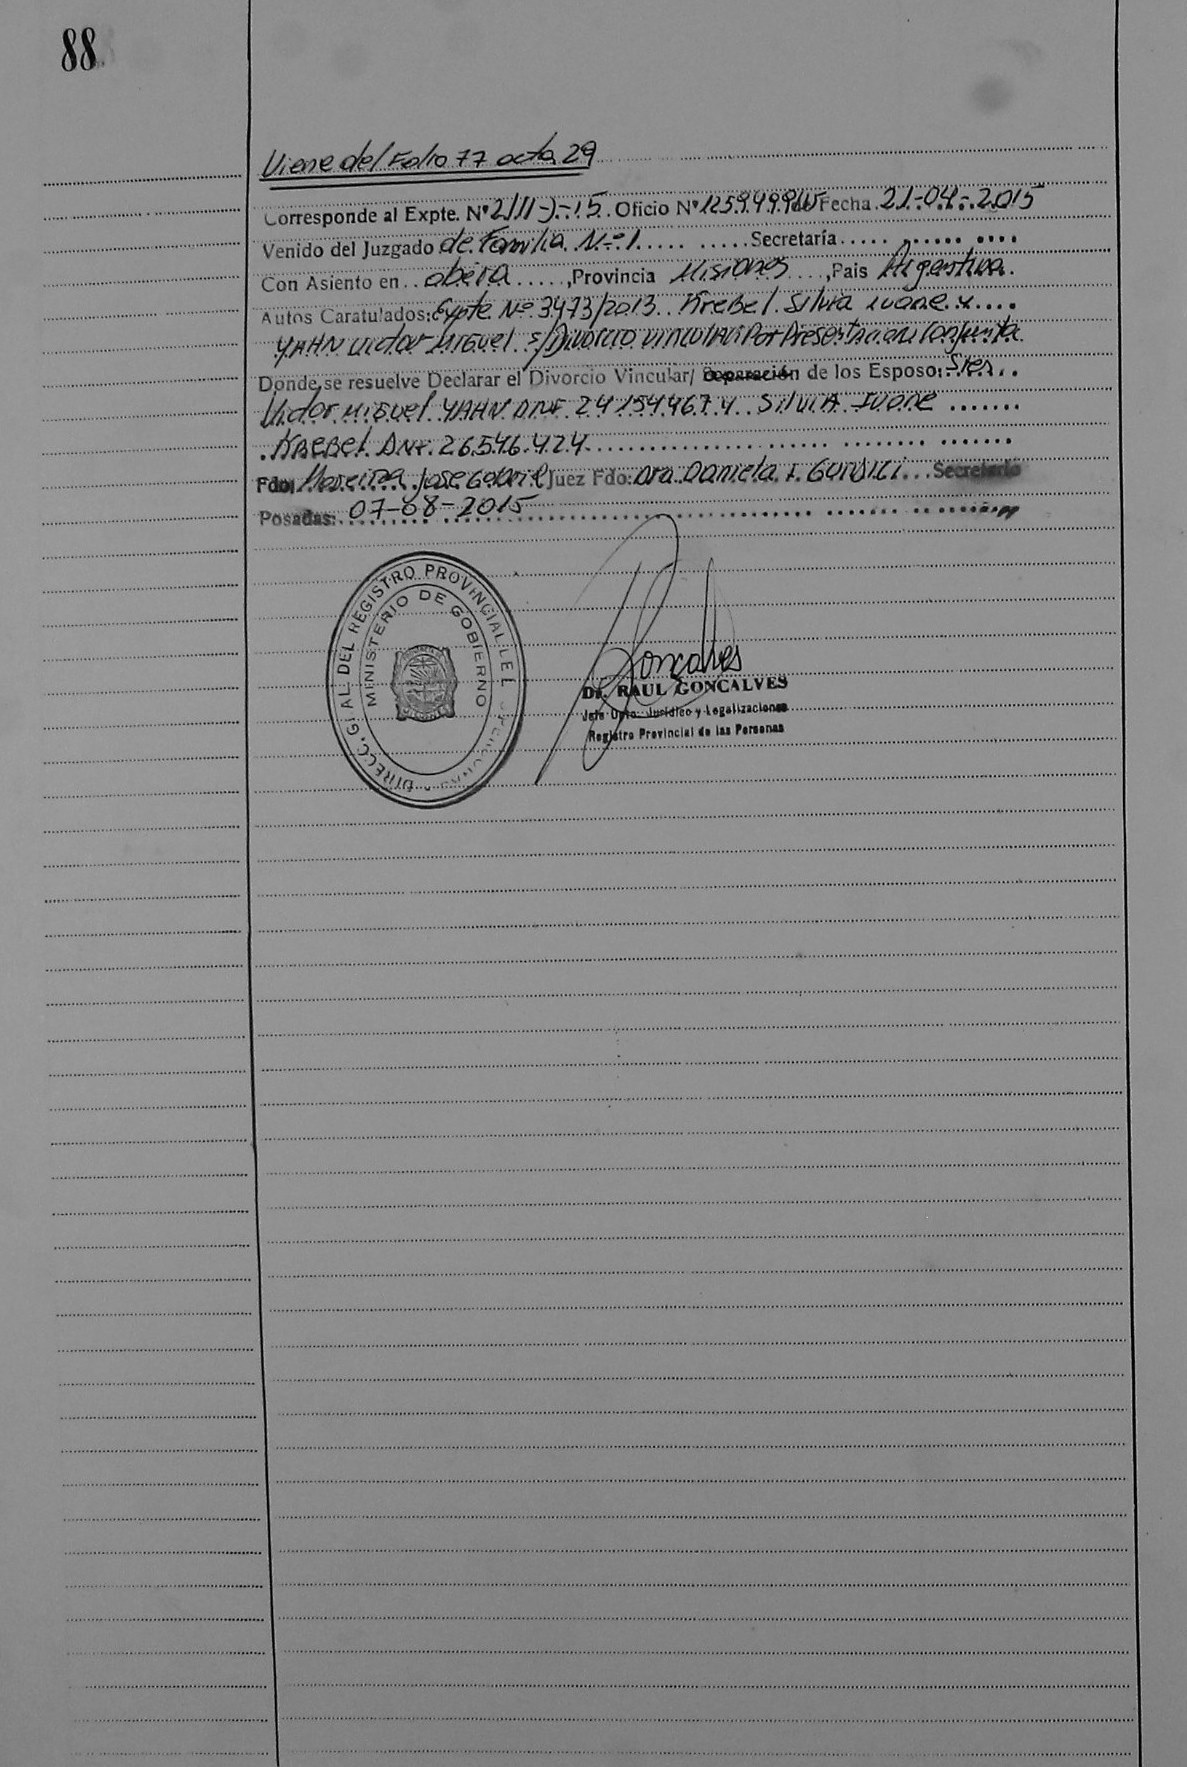 88
Viene del Folio 77 acta 29
Corresponde al Expte. Nº 2111-J-15. Oficio Nº de Fecha 21-04-2015
Venido del Juzgado de Familia Nº 1 Secretaría
Con Asiento en obera, Provincia Misiones, Pais Argentina.
Autos Caratulados: Expte Nº 3473/2013. KreBel Silvia Ivone y
YAHN Victor Miguel S/ Divorcio Vincular Por Presentacion Conjunta
Donde se resuelve Declarar el Divorcio Vincular/ Separación de los Esposo: Stes
Victor Miguel YAHN DNI. 24.154.467 y SilviA Ivone
KREBEL DNI. 26.546.424
Fdo: Moreira Jose Gabriel Juez Fdo: Dra. Daniela Secretario
Posadas: 07-08-2015
DIRECC. GRAL DEL REGISTRO PROVINCIAL DE PERSONAS
MINISTERIO DE GOBIERNO
Goncalves
Dr. RAUL GONCALVES
Jefe Dpto. Jurídico y Legalizaciones
Registro Provincial de las Personas